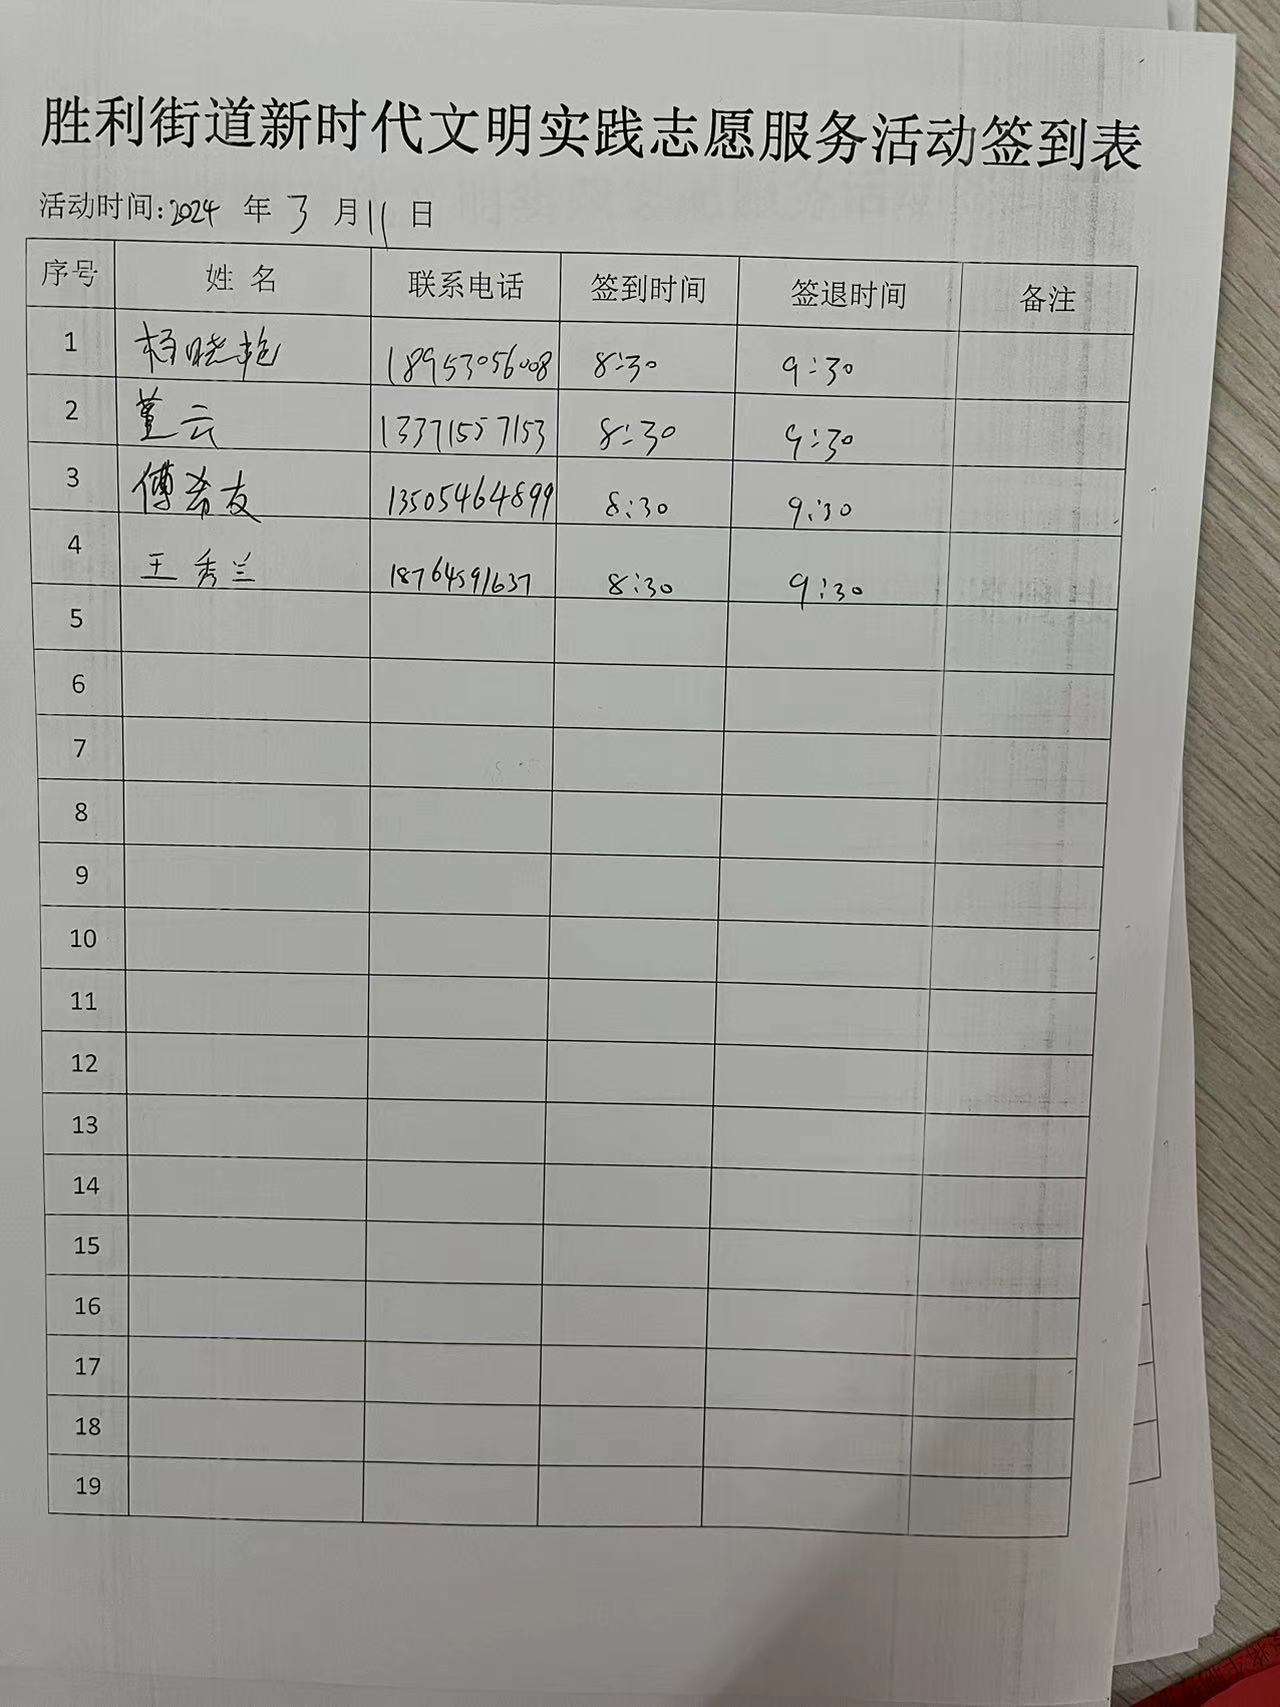 胜利街道新时代文明实践志愿服务活动签到表
活动时间:2024 年 3 月 11 日
序号 姓 名 联系电话 签到时间 签退时间 备注
1 杨晓艳 18953056008 8:30 9:30
2 董云 13371557153 8:30 9:30
3 傅希友 13505464899 8:30 9:30
4 王秀兰 18764591637 8:30 9:30
5
6
7
8
9
10
11
12
13
14
15
16
17
18
19